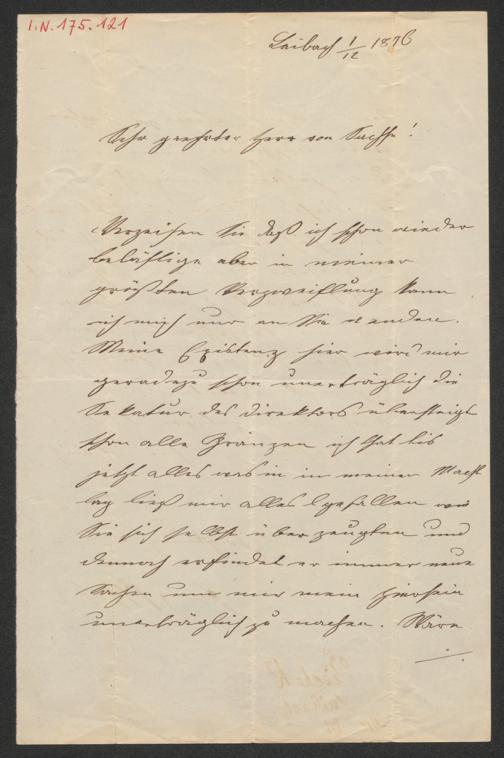 I.N. 175.121
Laibach 1/12 1876
Sehr geehrter Herr von Sachse!
Verzeihen Sie daß ich schon wieder
belästige aber in meiner
größten Verzweiflung kann
ich mich nur an Sie wenden.
Meine Existenz hier wird mir
geradezu schon unerträglich die
Sekatur des Direktors übersteigt
schon alle Gränzen ich that bis
jetzt alles was in meiner Macht
lag ließ mir alles gefallen wie
Sie sich selbst überzeugten und
dennoch erfindet er immer neue
Sachen um mir mein Hiersein
unerträglich zu machen. Wäre